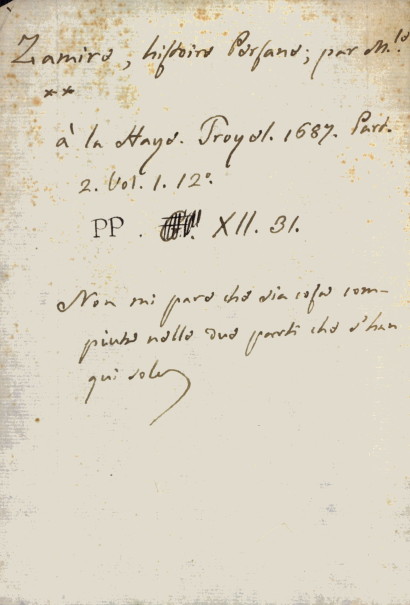 Zamire, histoire Persane; par M.r
**
à la Haye. Troyel. 1687. Part.
2. Vol. 1. 12°.
PP. XII. 31.
Non mi pare che sia cosa com-
piuta nelle due parti che s'han
qui sole